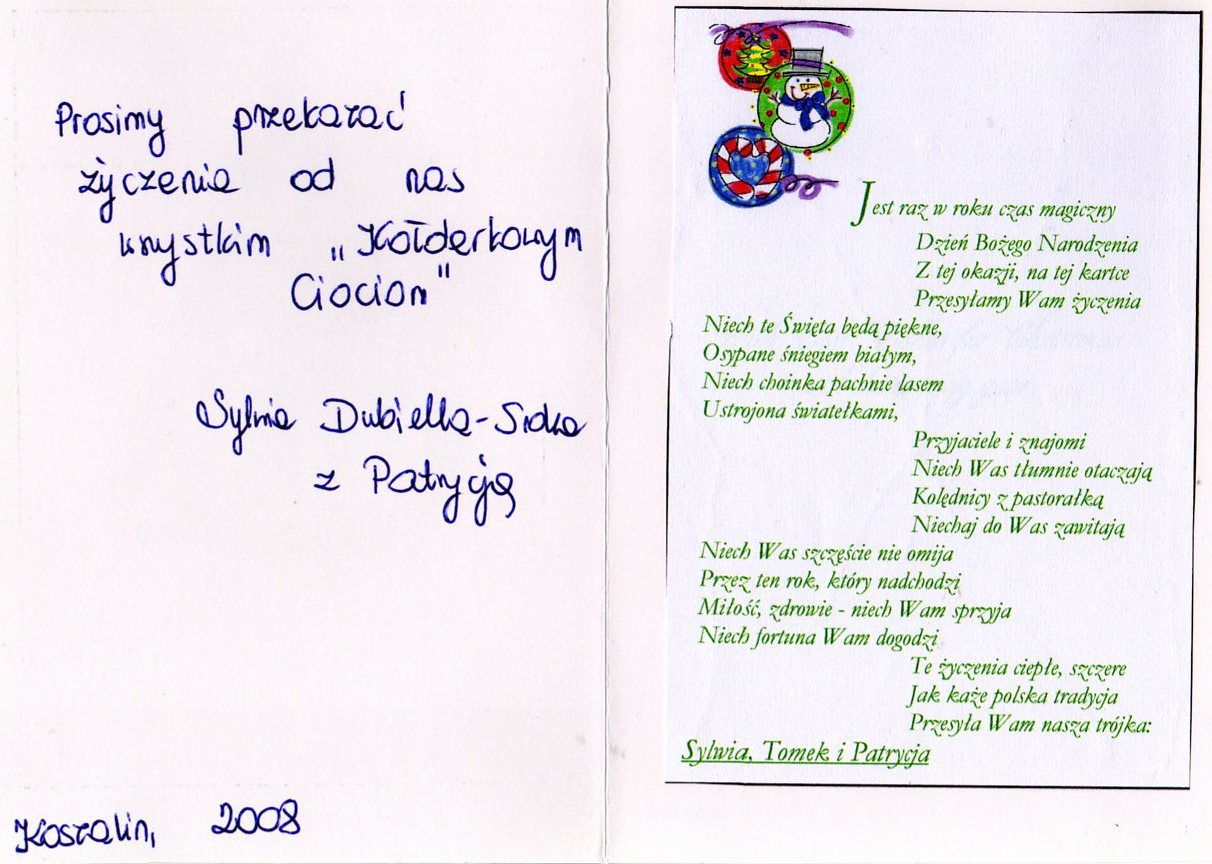 Prosimy przekazać
życzenia od nas
wszystkim „Kołderkowym
Ciociom"
Sylwia Dubiella-Sroka
z Patrycją
Koszalin, 2008
Jest raz w roku czas magiczny
Dzień Bożego Narodzenia
Z tej okazji, na tej kartce
Przesyłamy Wam życzenia
Niech te Święta będą piękne,
Osypane śniegiem białym,
Niech choinka pachnie lasem
Ustrojona światełkami,
Przyjaciele i znajomi
Niech Was tłumnie otaczają
Kolędnicy z pastorałką
Niechaj do Was zawitają
Niech Was szczęście nie omija
Przez ten rok, który nadchodzi
Miłość, zdrowie - niech Wam sprzyja
Niech fortuna Wam dogodzi
Te życzenia ciepłe, szczere
Jak każe polska tradycja
Przesyła Wam nasza trójka:
Sylwia, Tomek i Patrycja